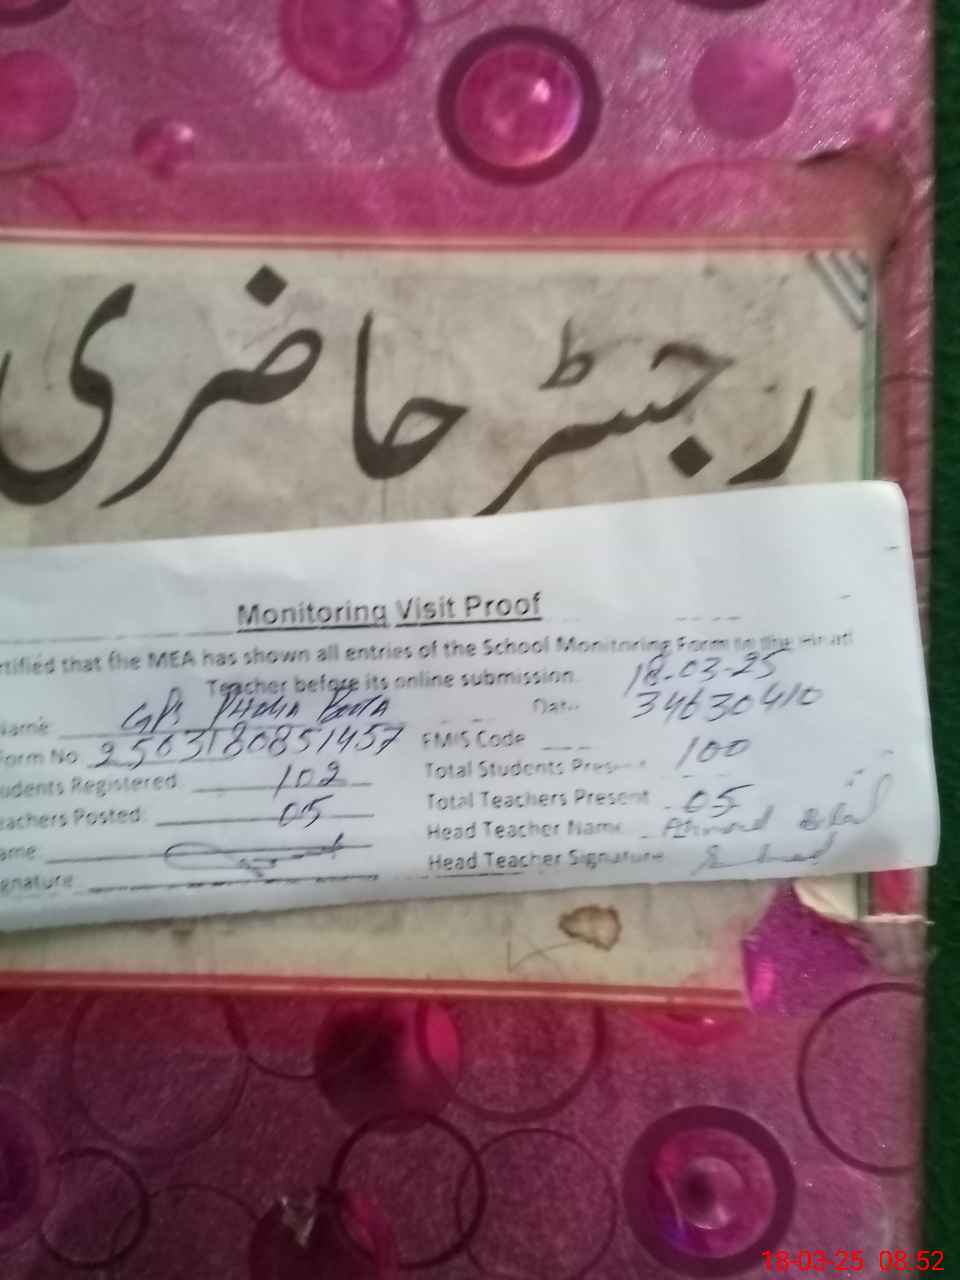 رجسٹر حاضری
Monitoring Visit Proof
rtified that the MEA has shown all entries of the School Monitoring Form to the Head
Teacher before its online submission.
Name GPS Date 18-03-25
Form No 2503180851457 EMIS Code 34630410
udents Registered 102 Total Students Present 100
eachers Posted 05 Total Teachers Present 05
ame Head Teacher Name Ahmad
gnature Head Teacher Signature
18-03-25 08:52